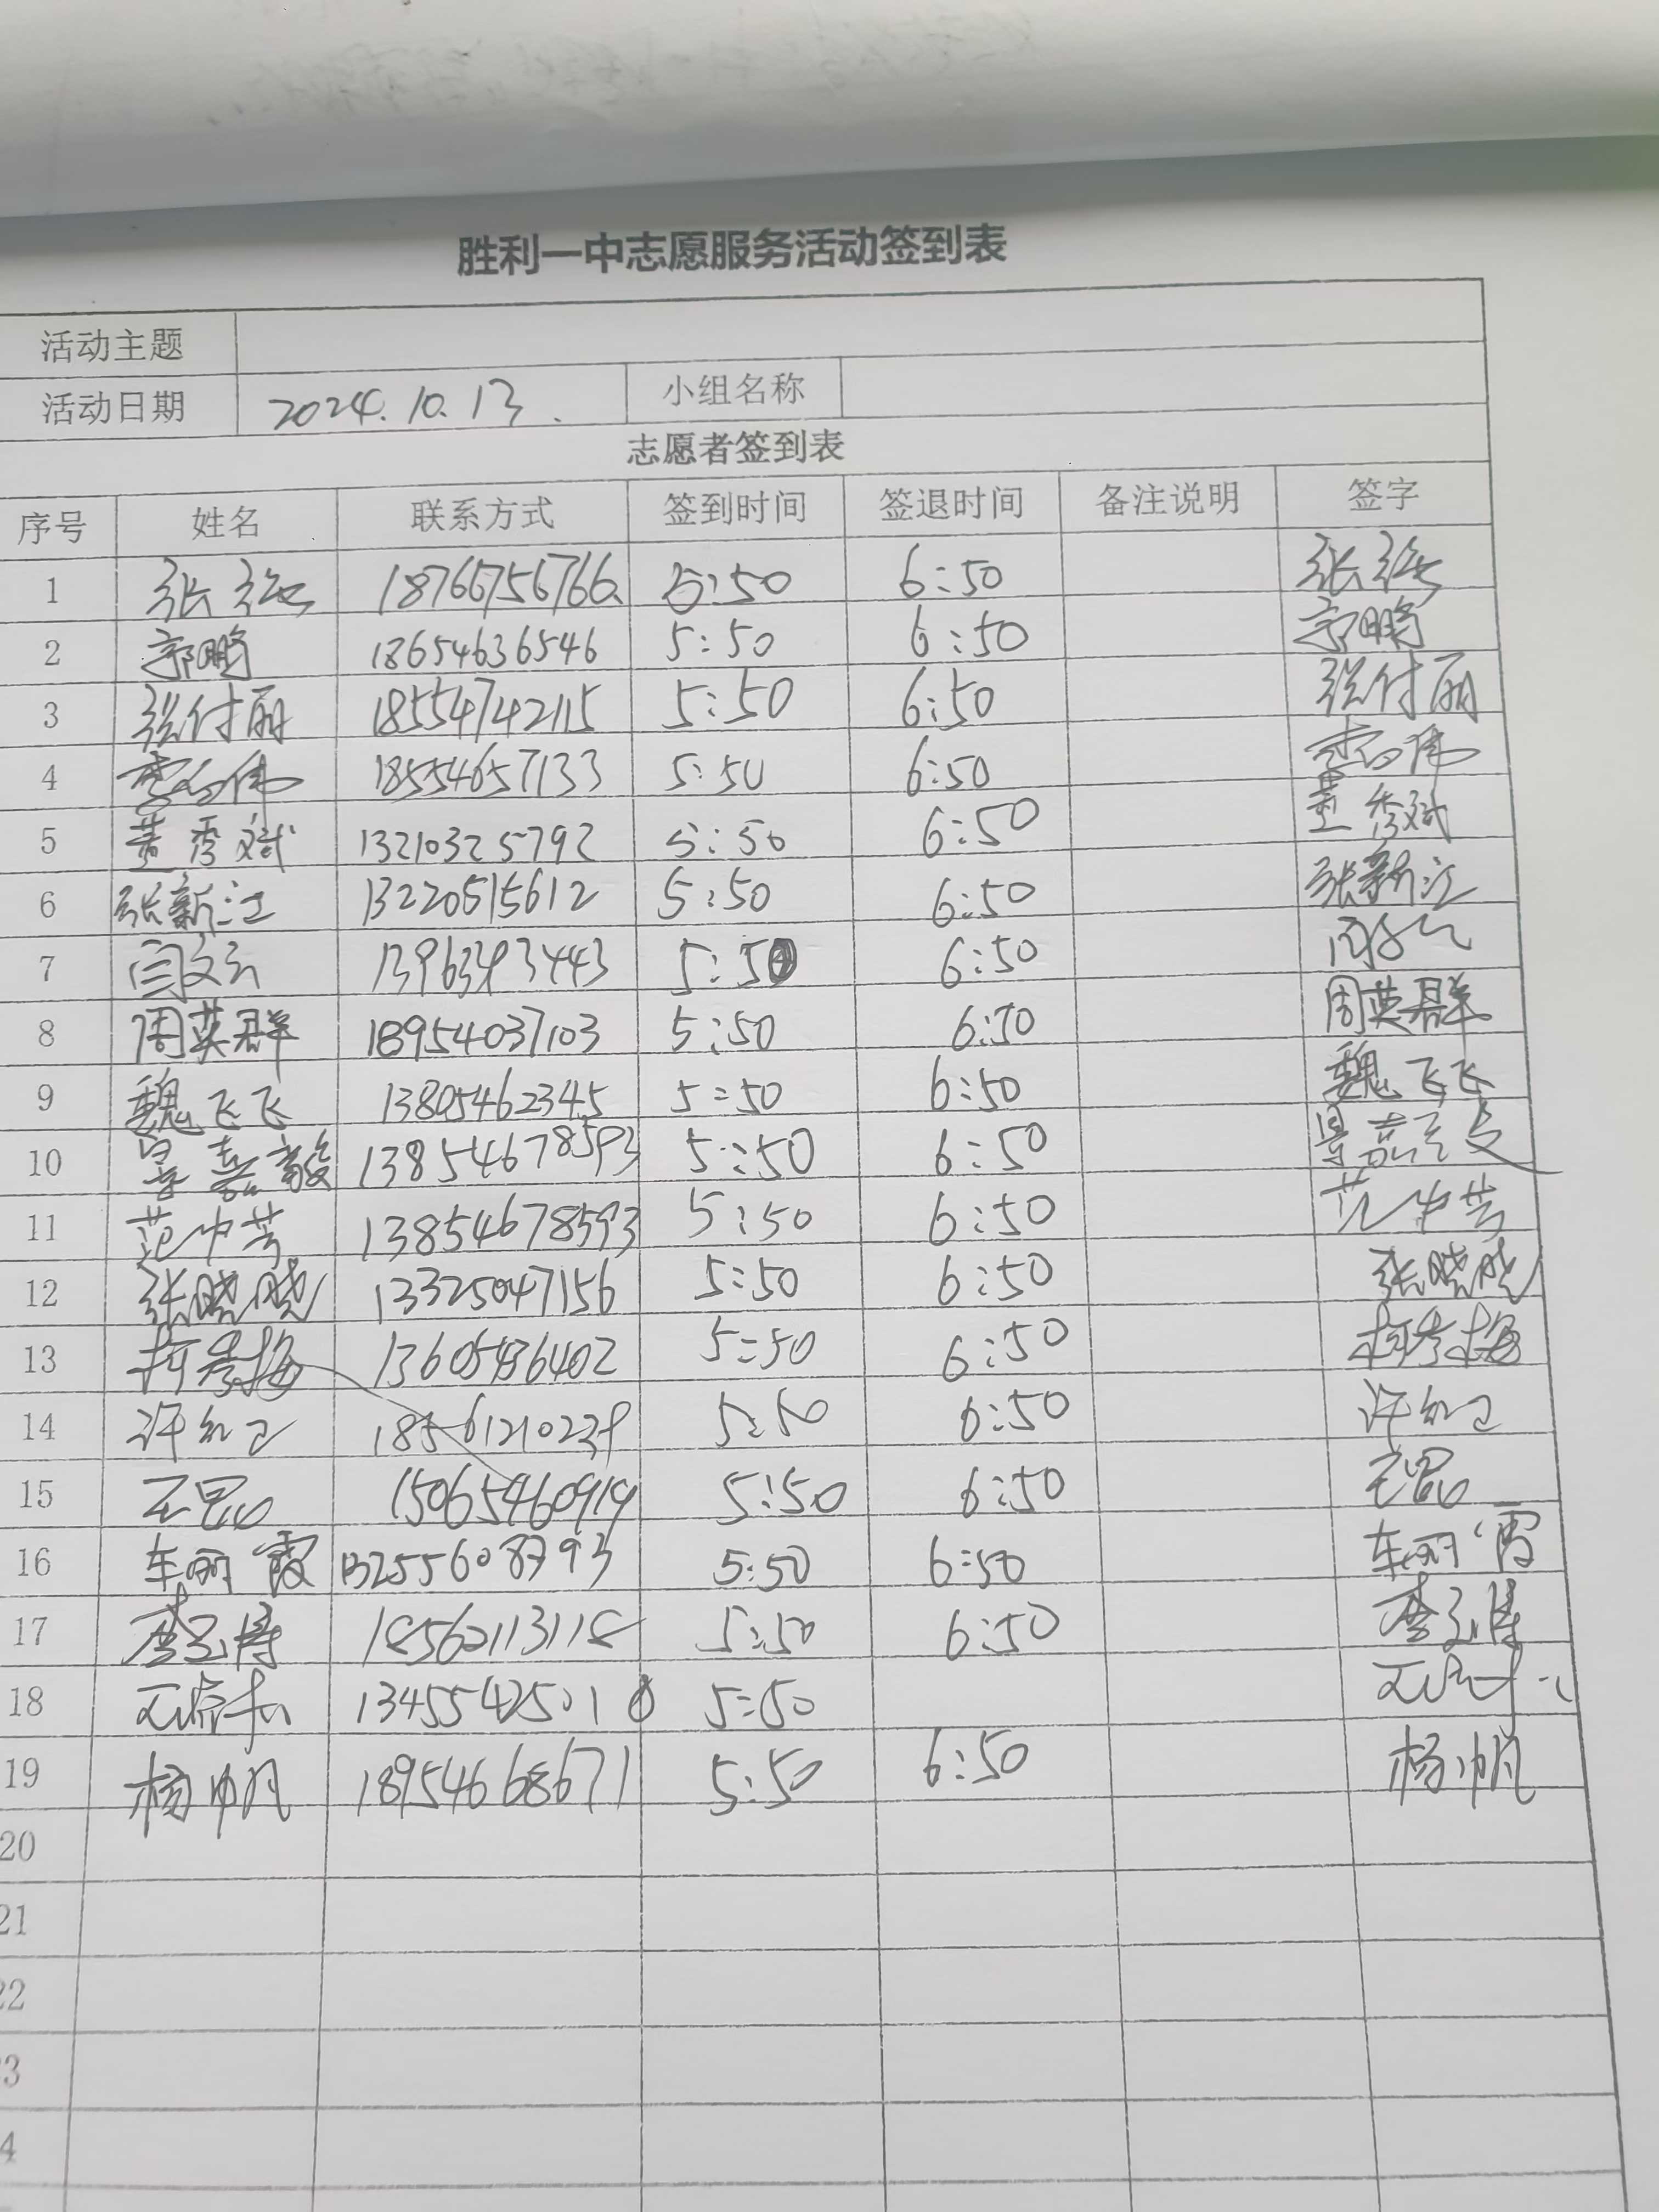 胜利一中志愿服务活动签到表
活动主题
活动日期 2024.10.13. 小组名称
志愿者签到表
序号 姓名 联系方式 签到时间 签退时间 备注说明 签字
1 张 18766756766 5:50 6:50 张
2 郭鹏 18654636546 5:50 6:50 郭鹏
3 张付丽 18554742115 5:50 6:50 张付丽
4 李 伟 18554657133 5:50 6:50 李 伟
5 董秀斌 13210325792 5:50 6:50 董秀斌
6 张新江 13220515612 5:50 6:50 张新江
7 闫文云 13963493443 5:50 6:50
8 周英群 18954037103 5:50 6:50 周英群
9 魏飞飞 13805462345 5:50 6:50 魏飞飞
10 景嘉骏 13854678593 5:50 6:50 景嘉
11 范中芳 13854678593 5:50 6:50 范中芳
12 张晓晓 13325047156 5:50 6:50 张晓晓
13 梅 13605436402 5:50 6:50 梅
14 许红卫 18561210239 5:50 6:50 许红卫
15 15065460919 5:50 6:50
16 车丽霞 13255608793 5:50 6:50 车丽霞
17 李玉 18562113118 5:50 6:50 李玉
18 13455425010 5:50
19 杨帆 18954668671 5:50 6:50 杨帆
20
21
22
3
4